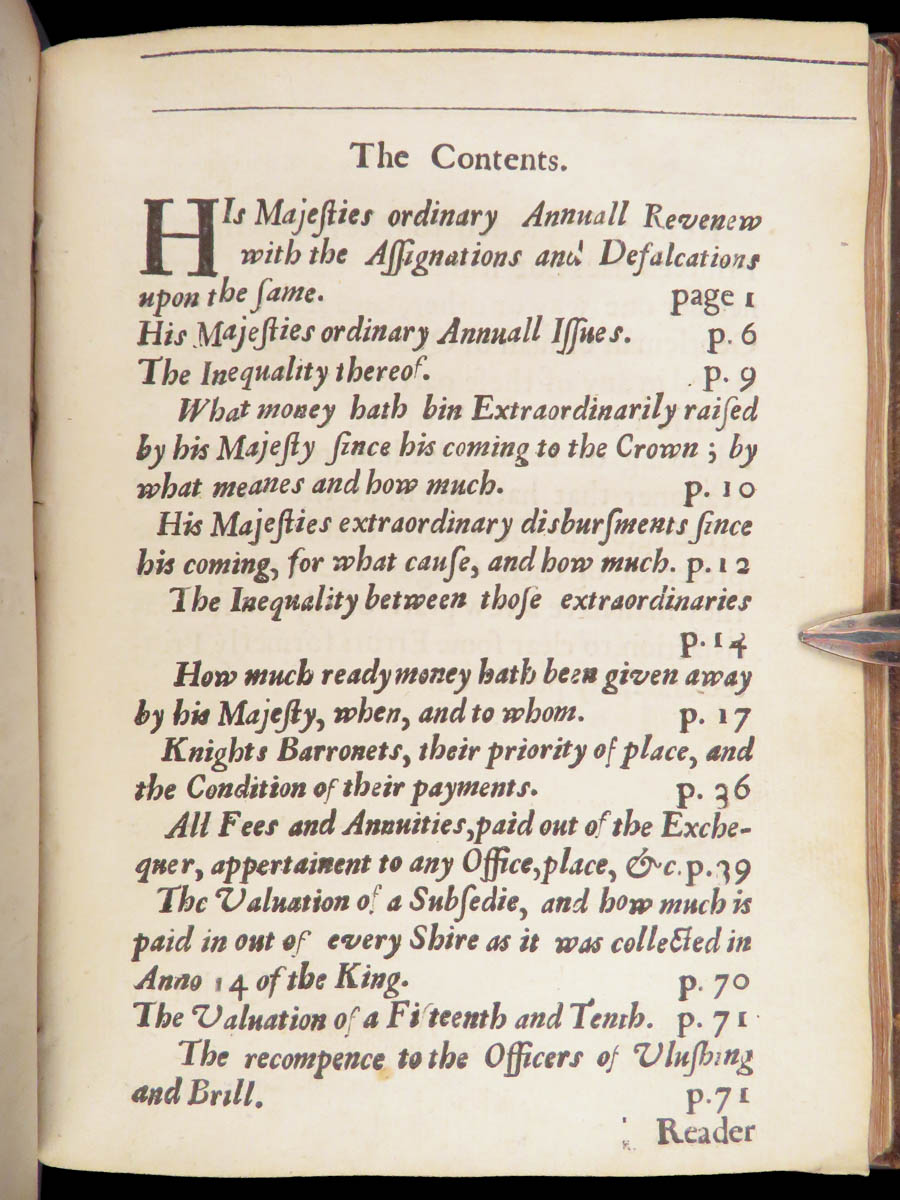 The Contents.
HIs Majeſties ordinary Annuall Revenew
with the Aſſignations and Defalcations
upon the ſame. page 1
His Majeſties ordinary Annuall Iſſues. p. 6
The Inequality thereof. p. 9
What money hath bin Extraordinarily raiſed
by his Majeſty ſince his coming to the Crown ; by
what meanes and how much. p. 10
His Majeſties extraordinary disburſments ſince
his coming, for what cauſe, and how much. p. 12
The Inequality between thoſe extraordinaries
p. 14
How much ready money hath been given away
by his Majeſty, when, and to whom. p. 17
Knights Barronets, their priority of place, and
the Condition of their payments. p. 36
All Fees and Annuities, paid out of the Exche-
quer, appertainent to any Office, place, &c. p. 39
The Valuation of a Subſedie, and how much is
paid in out of every Shire as it was collected in
Anno 14 of the King. p. 70
The Valuation of a Fifteenth and Tenth. p. 71
The recompence to the Officers of Vluſhing
and Brill. p. 71
Reader